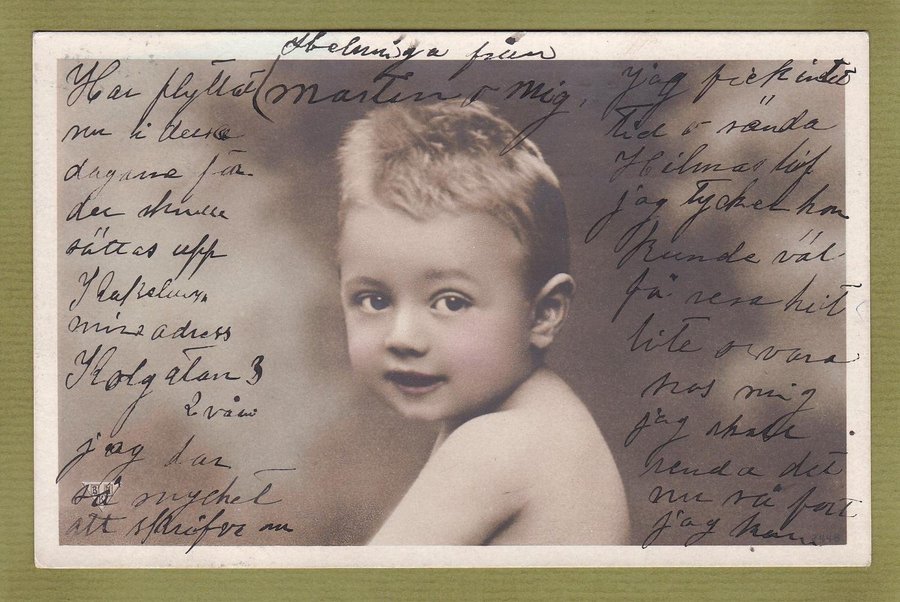 Helsninga från
Martin o mig.
Har flyttat
nu i dessa
dagarne för
der skulle
sättas upp
min adress
Kolgatan 3
2 vån
jag har
så mycket
att skrifva om
jag fick intet
tid o sända
Hilmas lif
jag tycker hon
kunde väl
få resa hit
lite o vara
hos mig
jag skall
senda det
nu så fort
jag kan